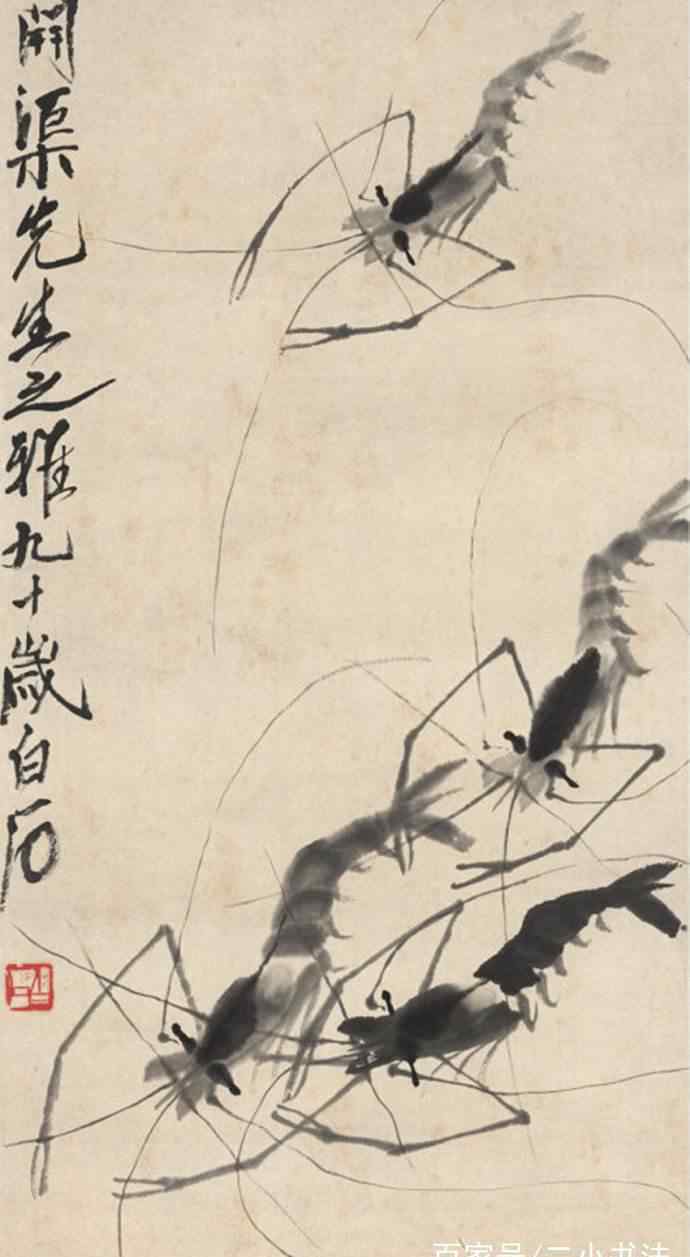 開渠先生之雅九十歲白石
百家号/二小书法